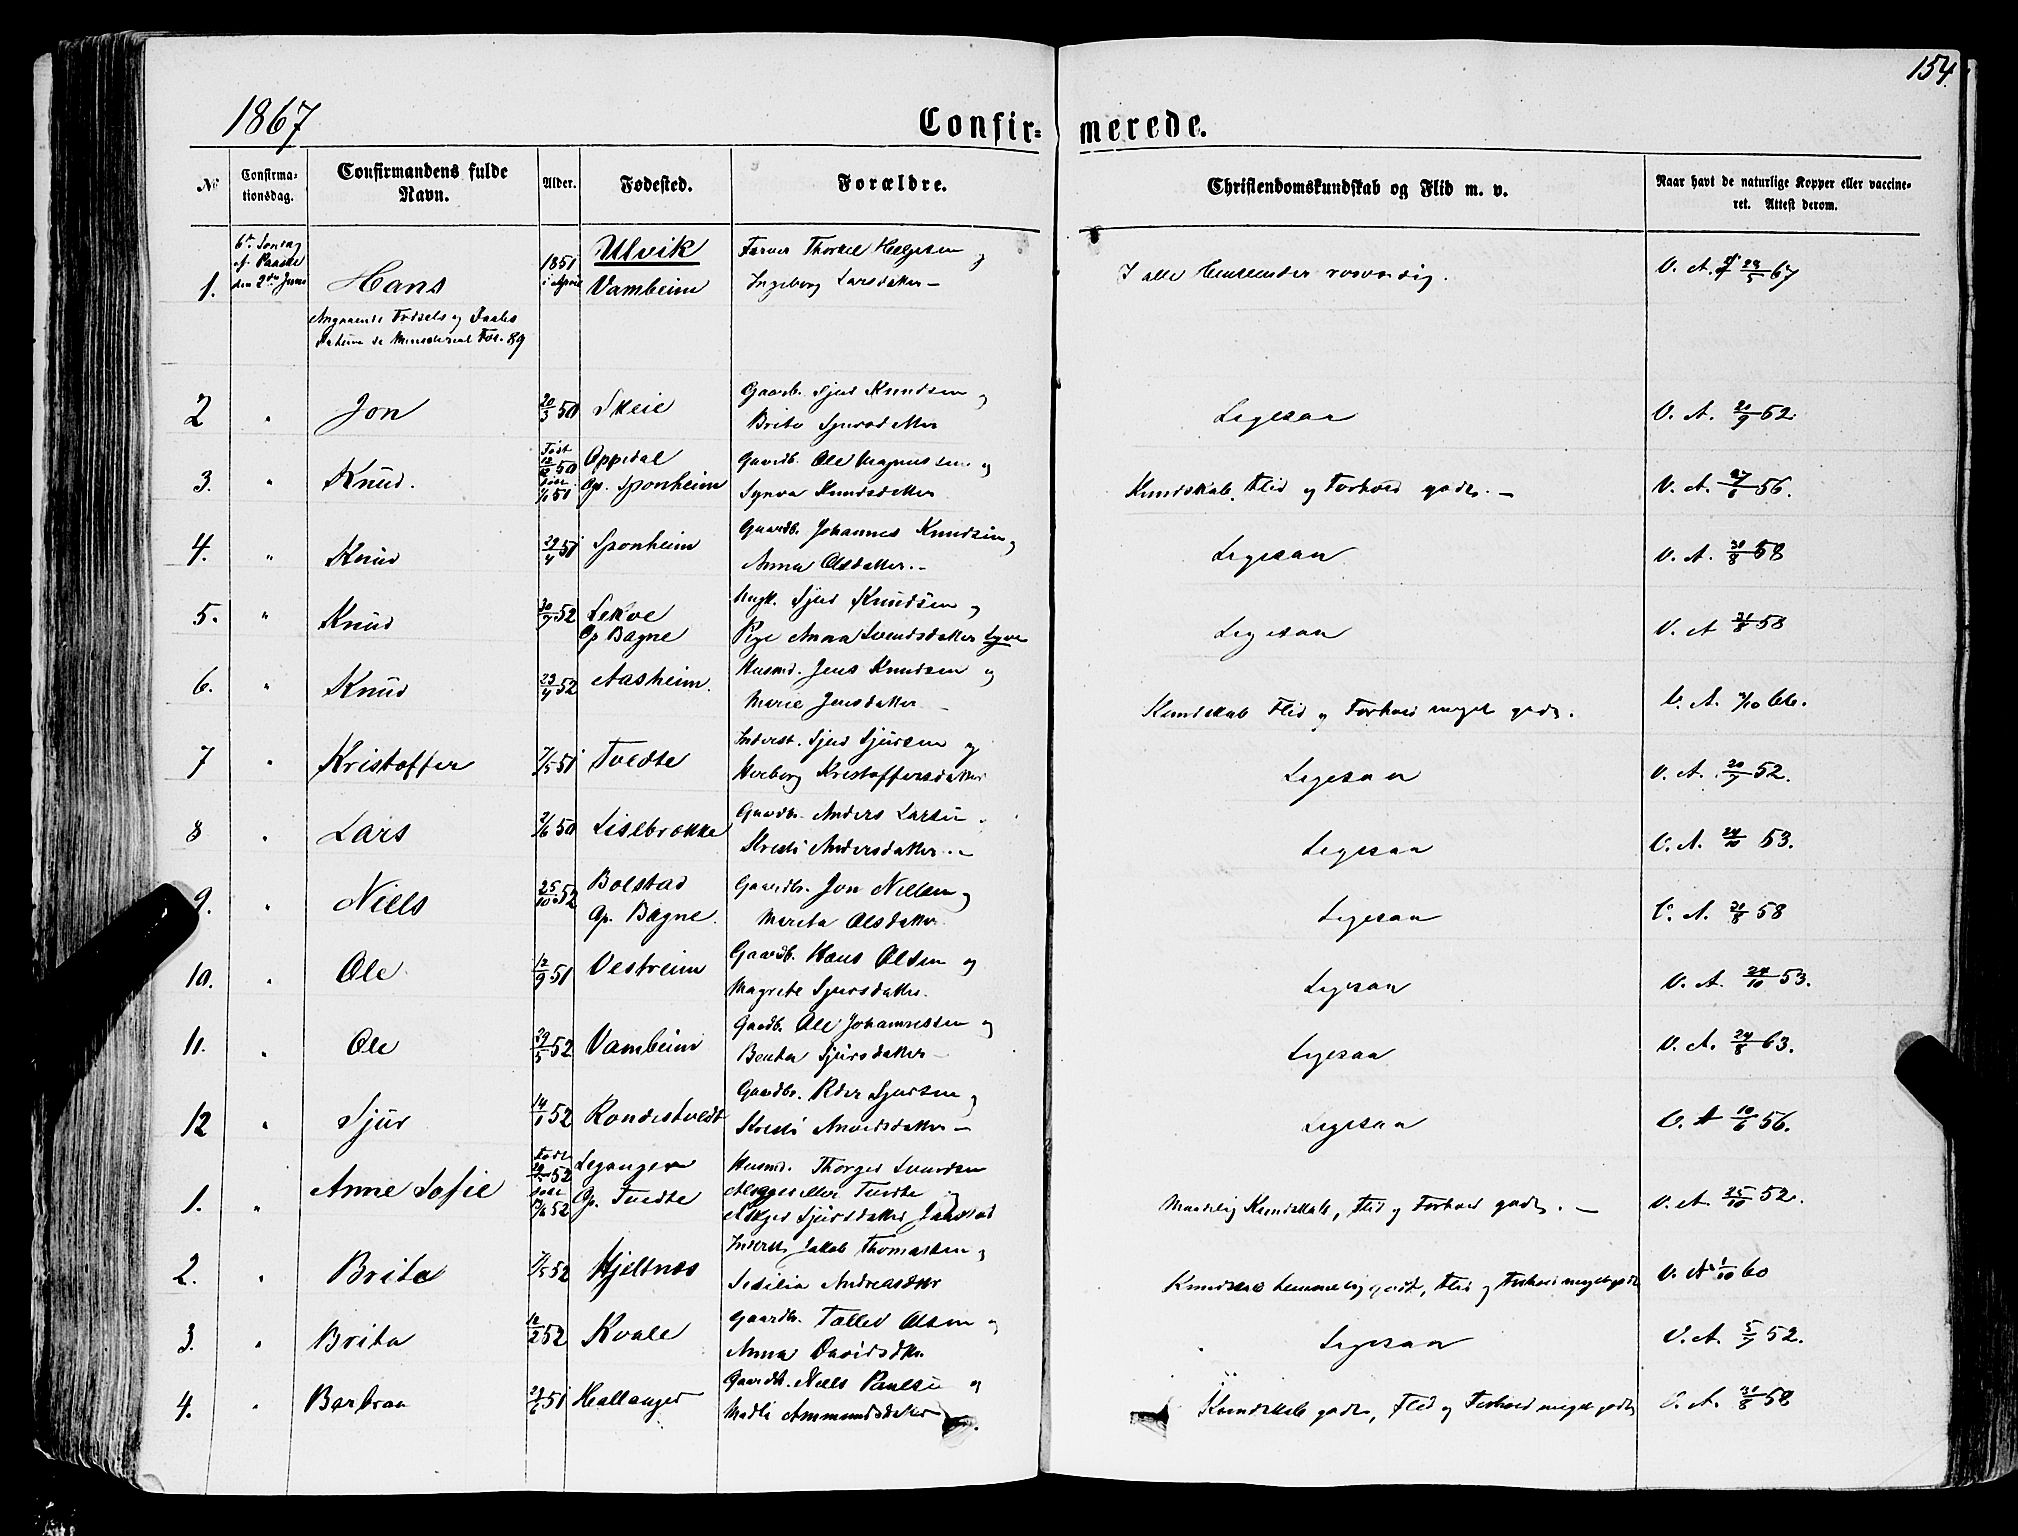 154
1867
Confir- merede.
№ Confirmationsdag. Confirmandens fulde Navn. Alder. Fødested. Forældre. Christendomskundskab og Flid m. v. Naar havt de naturlige Kopper eller vaccineret. Attest derom.
1. 6te Søndag ef. Paaske den 2den Juni Hans 1851 i April Ulvik Vambeim Farver Thorkel Helgesen og Ingeborg Larsdatter I alle Henseender rosværdig. V. A. af 29/5 67
Angaaende Fødsels og Daabs
Datum se Ministerial For. 89
2 " Jon 20/3 50 Skeie Gaardb. Sjur Knudsen og Brita Sjursdatter Ligesaa V. A. 21/9 52.
3. " Knud. Født 12/12 50 1/1 51 Oppedal Op. Sponheim Gaardb. Ole Magnussen og Synva Knudsdatter Kundskab, Flid og Forhold gode. - V. A. 27/6 56.
4. " Knud 29/4 51 Sponheim Gaardb. Johannes Knudsen og Anna Olsdatter. - Ligesaa V. A. 31/8 58
5. " Knud 30/7 52 Lekve Op Bagne Ungk. Sjur Knudsen og Pige Anna Svendsdatter Ligesaa V. A 31/8 58
6. " Knud 23/4 52 Aasheim. Husmd. Jens Knudsen og Marie Jensdatter Kundskab Flid og Forhold meget gode. V. A. 2/10 66.
7 " Kristoffer 7/5 51 Tvedte Inderst. Sjur Sjursen og Herborg Kristoffersdatter Ligesaa V. A. 20/9 52.
8 " Lars 2/6 50 Lislebrække Gaardb. Anders Larsen Kristi Andersdatter. - Ligesaa V. A. 24/10 53.
9. " Niels 25/10 52 Bolstad Op. Bagne. Gaardb. Jon Nielsen og Marita Olsdatter Ligesaa V. A. 31/8 58
10. " Ole 12/9 51 Vestreim Gaardb. Hans Olsen og Magrete Sjursdatter. Ligesaa V. A. 24/10 53.
11. " Ole 29/5 52 Vambeim Gaardb. Ole Johannessen og Benta Sjursdatter - Ligesaa V. A. 24/8 63.
12 " Sjur 14/1 52 Rondestvedt Gaardbr. Peder Sjursen og Kristi Anvedsdatter - Ligesaa V. A 10/6 56.
1. " Anne Sofie 52 52 Leganger Op. Tvedte Husmd. Thorger Svendsen Tvedte og Sjursdatter Maadelig Kundskab, Flid og Forhold gode. - V. A. 25/10 52.
2. " Brita 7/5 52 Hjeltnæs Inderst Jakob Thomassen og Sesilia Andreasdtr Kundskab temmelig godt, Flid og Forhold meget gode V. A. 1/10 60
3. " Brita 12/2 52 Kvale Gaardb. Tollev Olsen og Anna Davidsdtr. Ligesaa V. A. 5/9 52.
4. " Barbraa 24/6 51 Hallanger Gaardb. Niels Paulsen og Madli Ammundsdatter Kundskab gode, Flid og Forhold meget gode V. A. 31/8 58